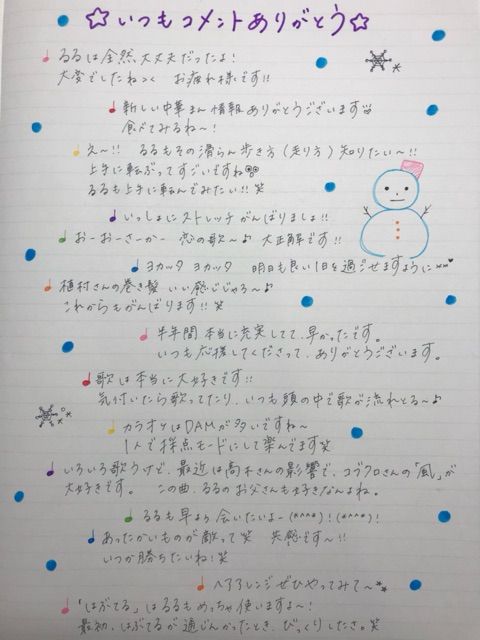 ☆いつもコメントありがとう☆
♩るるは全然、大丈夫だったよ!
大変でしたね>< お疲れ様です!!
♩新しい中華まん情報ありがとうございます
食べてみるね〜!
♩え〜!! るるもその滑らん歩き方(走り方)知りたい〜!!
上手に転ぶってすごいですね
るるも上手に転んでみたい!!笑
♩いっしょにストレッチがんばりましょ!!
♩おーおーさーかー 恋の歌〜♪ 大正解です!!
♩ヨカッタ ヨカッタ 明日も良い1日を過ごせますように
♩植村さんの巻き髪 いい感じじゃろ〜♪
これからもがんばります!!笑
♩半年間 本当に充実してて、早かったです。
いつも応援してくださって、ありがとうございます。
♩歌は本当に大好きです!!
気付いたら歌ってたり、いつも頭の中で歌が流れとる〜♪
♩カラオケはDAMが多いですね〜
1人で採点モードにして楽んでます笑
♩いろいろ歌うけど、最近は高木さんの影響で、コブクロさんの「風」が
大好きです。 この曲、るるのお父さんも好きなんよね。
♩るるも早よう会いたいよー(*^^*)!(*^^*)!
♩あったかいものが敵って笑 共感です〜!!
いつか勝ちたいね!笑
♩ヘアアレンジぜひやってみて〜
♩「はぶてる」はるるもめっちゃ使いますよ〜!
最初、はぶてるが通じんかったとき、びっくりしたさ。笑